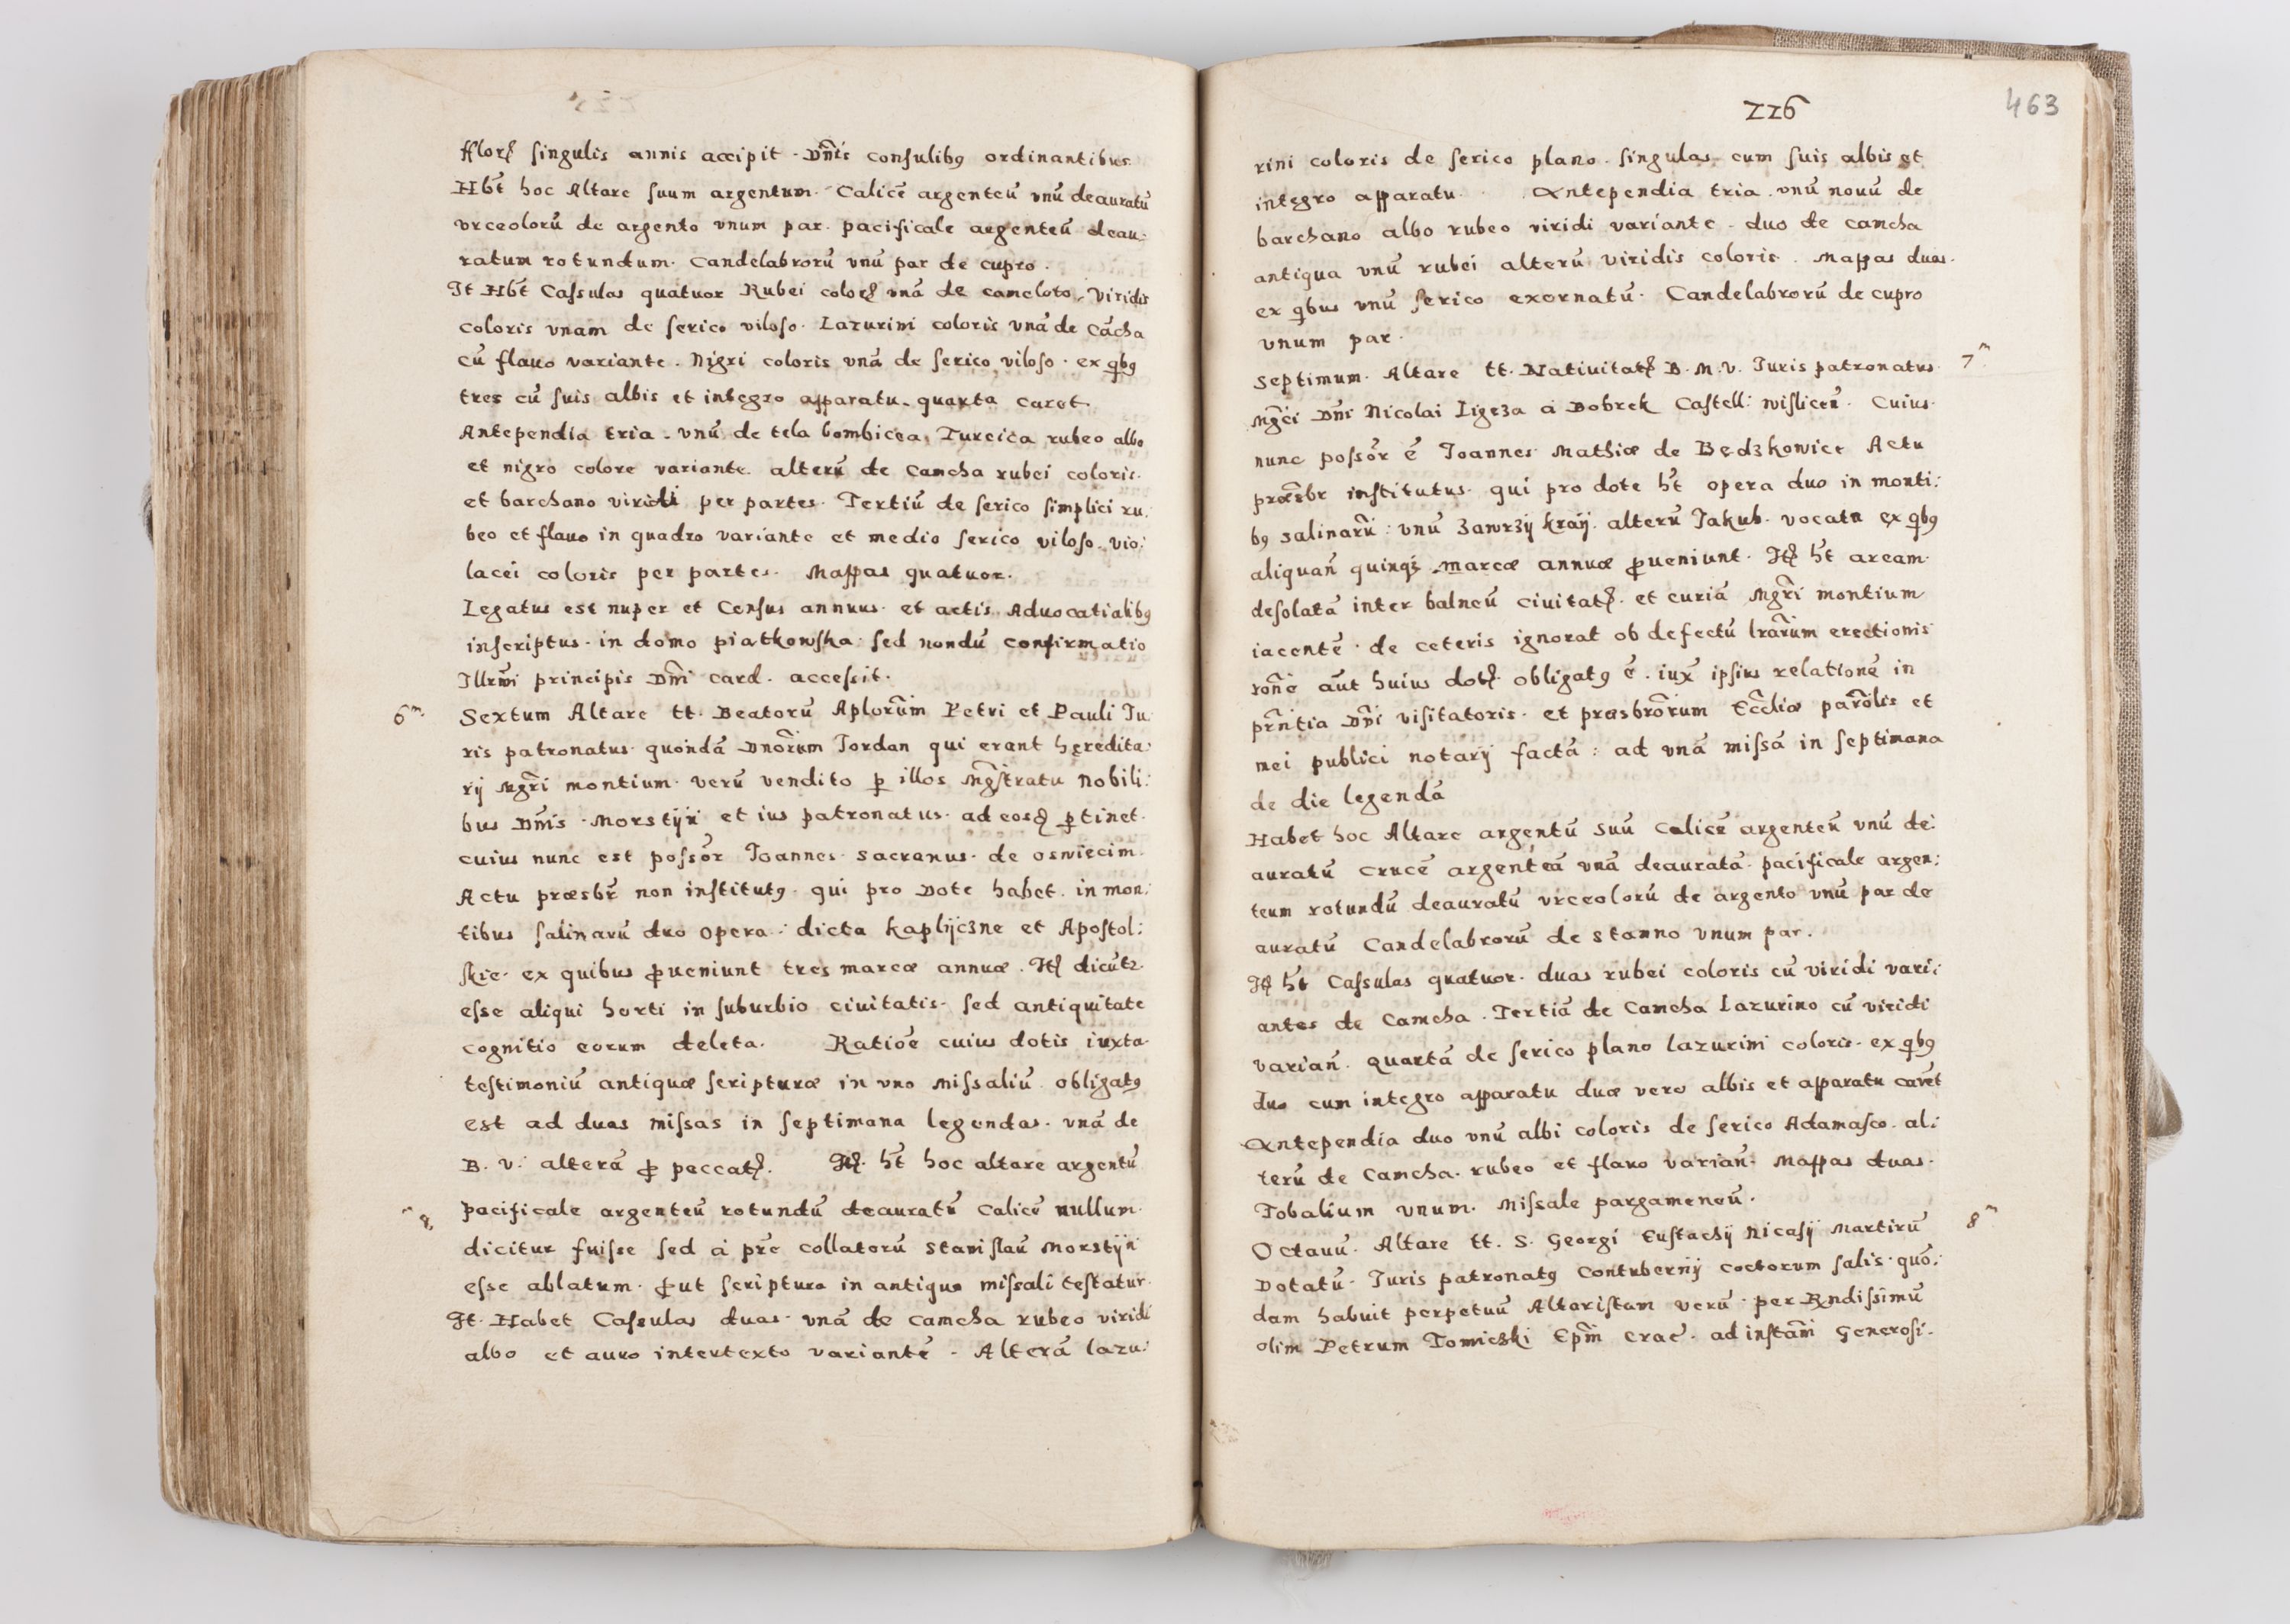 fflorꝭ singulis annis accipit. Dn̄is consulibꝫ ordinantibus
Hb̄t hoc Altare suum argentum. Calicē argenteū vnū deauratū
vrceolorū de argento vnum par. pacificale argenteū deau:
ratum rotundum. Candelabrorū vnū par de cupro.
It Hb̄t Cassulas quatuor Rubei colorꝭ vnā de cameloto, Viridis
coloris vnam de serico viloso. Lazurini coloris vnā de Cācha
cū flauo variante. Nigri coloris vnā de serico viloso. ex qbꝫ
tres cū suis albis et integro apparatu. quarta caret.
Antependia tria. vnū de tela bombicea, Turcica rubeo albo
et nigro colore variante. alterū de Camcha rubei coloris.
et barchano viridi per partes. Tertiū de serico simplici ru:
beo et flauo in quadro variante et medio serico viloso. vio:
lacei coloris per partes. Mappas quatuor.
Legatus est nuper et Census annuus. et actis Aduocatialibꝫ
inscriptus. in domo piatkowska. sed nondū confirmatio
Illrm̄i principis Dn̄i card. accessit.
6m. Sextum Altare tt. Beatorū Aplorūm Petri et Pauli Iu
ris patronatus. quondā Dnōrum Iordan qui erant hęredita:
rij Mgr̄i montium. verū vendito ꝑ illos Mgs̄tratu nobili:
bus Dn̄is. Morstijn et ius patronatus. ad eosdꝭ ꝑtinet.
cuius nunc est possōr Ioannes. Sacranus. de osniecim.
Actu præsbr̄ non institutꝫ. qui pro Dote habet. in mon:
tibus salinarū duo opera. dicta kaplijczne et Apostol:
skie. ex quibus ꝓueniunt tres marcæ annuæ. Itꝭ dicūtr.
esse aliqui horti in suburbio ciuitatis. sed antiquitate
cognitio eorum deleta. Ratiōe cuius dotis iuxta
testimoniū antiquæ scripturæ in vno Missaliū obligatꝫ
est ad duas missas in septimana legendas. vnā de
B. V. alterā ꝓ peccatꝭ. Itꝭ. hr̄t hoc altare argentū
pacificale argenteū rotundū deauratū Calicē nullum.
dicitur fuisse sed à pr̄e collatorū Stanislaū Morstijn
esse ablatum. ꝓut scriptura in antiquo missali testatur.
It. Habet Cassulas duas. vnā de camcha rubeo viridi
albo et auro intertexto variantē. Alterā lazu:
226
463
rini coloris de serico plano. singulas. cum suis albis et
integro apparatu. Antependia tria. vnū nouū de
barchano albo rubeo viridi variante. duo de camcha
antiqua vnū rubei alterū viridis coloris. Mappas duas.
ex qbus vnū serico exornatū. Candelabrorū de cupro
vnum par.
Septimum. Altare tt. Natiuitatꝭ B. M. V. Iuris patronatus. 7m
Mgc̄i Dn̄i Nicolai Ligęza à Dobrek Castell: wislicen̄. Cuius.
nunc possōr ē Ioannes Mathiæ de Będzkowicz Actu
præsbr institutus. qui pro dote hr̄t opera duo in monti:
bꝫ salinarū: vnū Zawrzij kraij. alterū Jakub. vocata ex qbꝫ
aliquan̄ quinqꝫ marcæ annuæ ꝓueniunt. Itꝭ hr̄t aream.
desolatā inter balneū ciuitatꝭ. et curiā Mgr̄i montium
iacentē. de ceteris ignorat ob defectū lrārum erectionis
rōne aūt huius dotꝭ. obligatꝫ ē. iux̄ ipsius relationē in
prn̄tia Dn̄i visitatoris. et præsbrōrum Eccl̄iæ parōlis et
mei publici notarij factā: ad vnā missā in septimana
de die legendā
Habet hoc Altare argentū suū Calicē argenteū vnū de:
auratū crucē argenteā vnā deauratā. pacificale argen:
teum rotundū deauratū vrceolorū de argento vnū par de
auratū Candelabrorū de stanno vnum par.
Itꝭ hr̄t Cassulas quatuor. duas rubei coloris cū viridi vari:
antes de Camcha. Tertiā de Camcha lazurino cū viridi
varian̄. quartā de serico plano lazurini coloris. ex qbꝫ
duo cum integro apparatu duæ vero albis et apparatu carēt
Antependia duo vnū albi coloris de serico Adamasco. al:
terū de Camcha. rubeo et flauo varian̄. Mappas duas.
Tobalium vnum. Missale pargameneū.
Octauū. Altare tt. S. Georgi Eustachij Nicasij Martirū 8m
Dotatū. Iuris patronatꝫ Contubernij coctorum salis. quō:
dam habuit perpetuū Altaristam verū. per Rndissimū
olim Petrum Tomiczki Epm̄ crac̄. ad instān̄ Generosi.